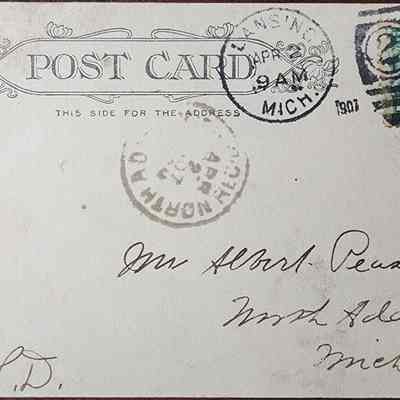 POST CARD
THIS SIDE FOR THE ADDRESS
LANSING
APR 2
9 AM
MICH.
1907
2
REC'D
APR
2
07
NORTH AD
Mr Albert Peas
North Ada
Mich
P.D.